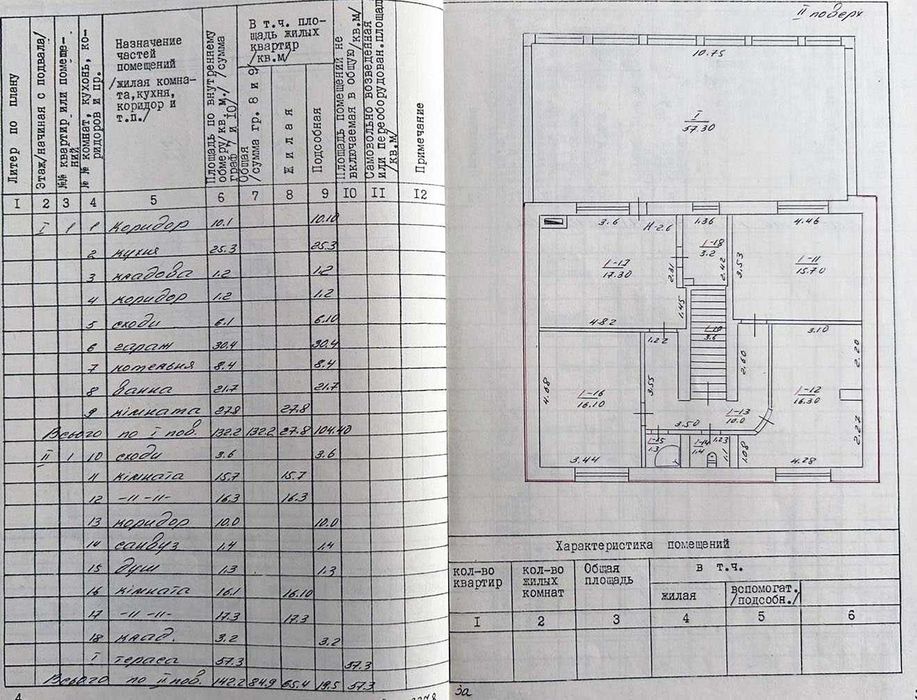 Литер по плану
Этаж/начиная с подвала/
№№ квартир или помещений
№№ комнат, кухонь, коридоров и пр.
Назначение
частей
помещений
/жилая комна-
та,кухня,
коридор и
т.п./
Площадь по внутреннему
обмеру/кв.м./сумма
граф 7 и 10/
В т.ч. пло-
щадь жилых
квартир
/кв.м/
Общая
/сумма гр. 8 и 9/
Жилая
Подсобная
Площадь помещений не
включаемая в общую/кв.м/
Самовольно возведенная
или переоборудован.площадь
/кв.м/
Примечание
I 2 3 4 5 6 7 8 9 10 11 12
I 1 1 коридор 10.1 10.10
2 кухня 25.3 25.3
3 кладова 1.2 1.2
4 коридор 1.2 1.2
5 сходи 6.1 6.10
6 гараж 30.4 30.4
7 котельня 8.4 8.4
8 ванна 21.7 21.7
9 кімната 27.8 27.8
Всього по I пов. 132.2 132.2 27.8 104.40
II 1 10 сходи 3.6 3.6
11 кімната 15.7 15.7
12 -II-II- 16.3 16.3
13 коридор 10.0 10.0
14 санвуз 1.4 1.4
15 душ 1.3 1.3
16 кімната 16.1 16.10
17 -II-II- 17.3 17.3
18 клад. 3.2 3.2
I тераса 57.3 57.3
Всього по II пов. 142.2 84.9 65.4 19.5 57.3
4
II поверх
10.75
I
57.30
3.6 H-2.6 1.36 4.46
1-18
3.2
1-17
17.30
1-11
15.70
2.31 2.42 3.53
1.45
1-10
3.6
4.82 1.22 3.10
2.60 2.20
4.68 3.55
1-16
16.10
1-12
16.30
1-13
10.0
3.50
2.22
1-15
1.3
1-14
1.4
1.23
1.1
1.08
3.44 4.28
Характеристика помещений
кол-во
квартир
кол-во
жилых
комнат
Общая
площадь
в т.ч.
жилая
вспомогат.
/подсобн./
I 2 3 4 5 6
За